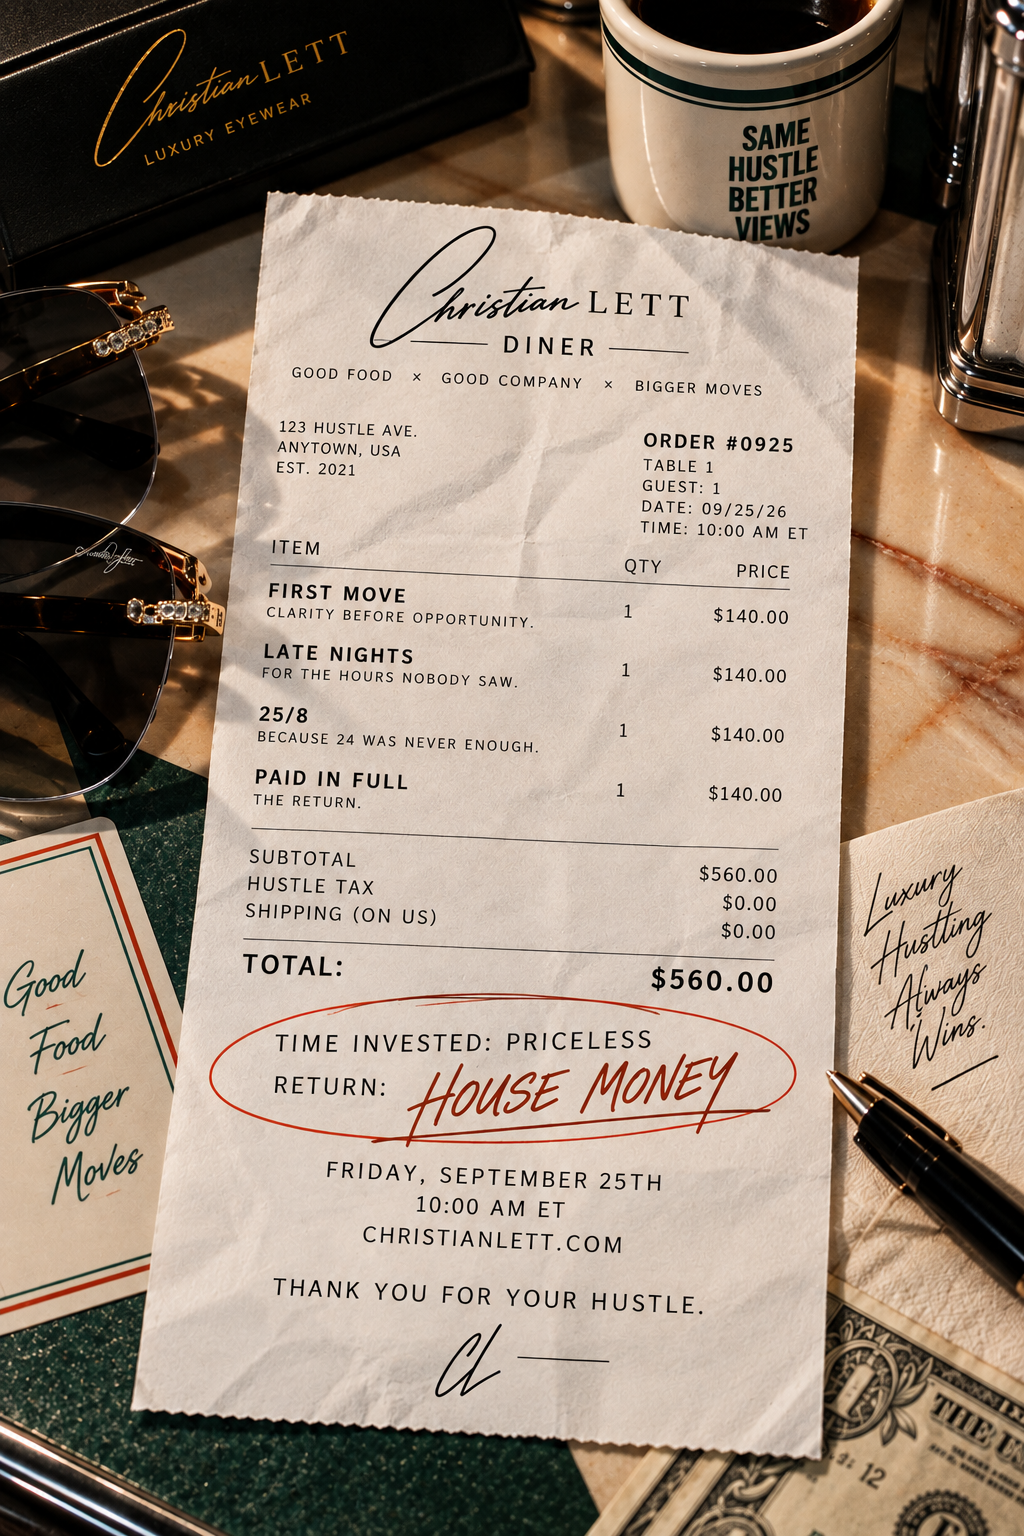 Christian LETT
LUXURY EYEWEAR
SAME
HUSTLE
BETTER
VIEWS
Christian LETT
DINER
GOOD FOOD × GOOD COMPANY × BIGGER MOVES
123 HUSTLE AVE.
ANYTOWN, USA
EST. 2021
ORDER #0925
TABLE 1
GUEST: 1
DATE: 09/25/26
TIME: 10:00 AM ET
ITEM QTY PRICE
FIRST MOVE 1 $140.00
CLARITY BEFORE OPPORTUNITY.
LATE NIGHTS 1 $140.00
FOR THE HOURS NOBODY SAW.
25/8 1 $140.00
BECAUSE 24 WAS NEVER ENOUGH.
PAID IN FULL 1 $140.00
THE RETURN.
SUBTOTAL $560.00
HUSTLE TAX $0.00
SHIPPING (ON US) $0.00
TOTAL: $560.00
TIME INVESTED: PRICELESS
RETURN: HOUSE MONEY
FRIDAY, SEPTEMBER 25TH
10:00 AM ET
CHRISTIANLETT.COM
THANK YOU FOR YOUR HUSTLE.
CL
Good
Food
Bigger
Moves
Luxury
Hustling
Always
Wins.
THE
12